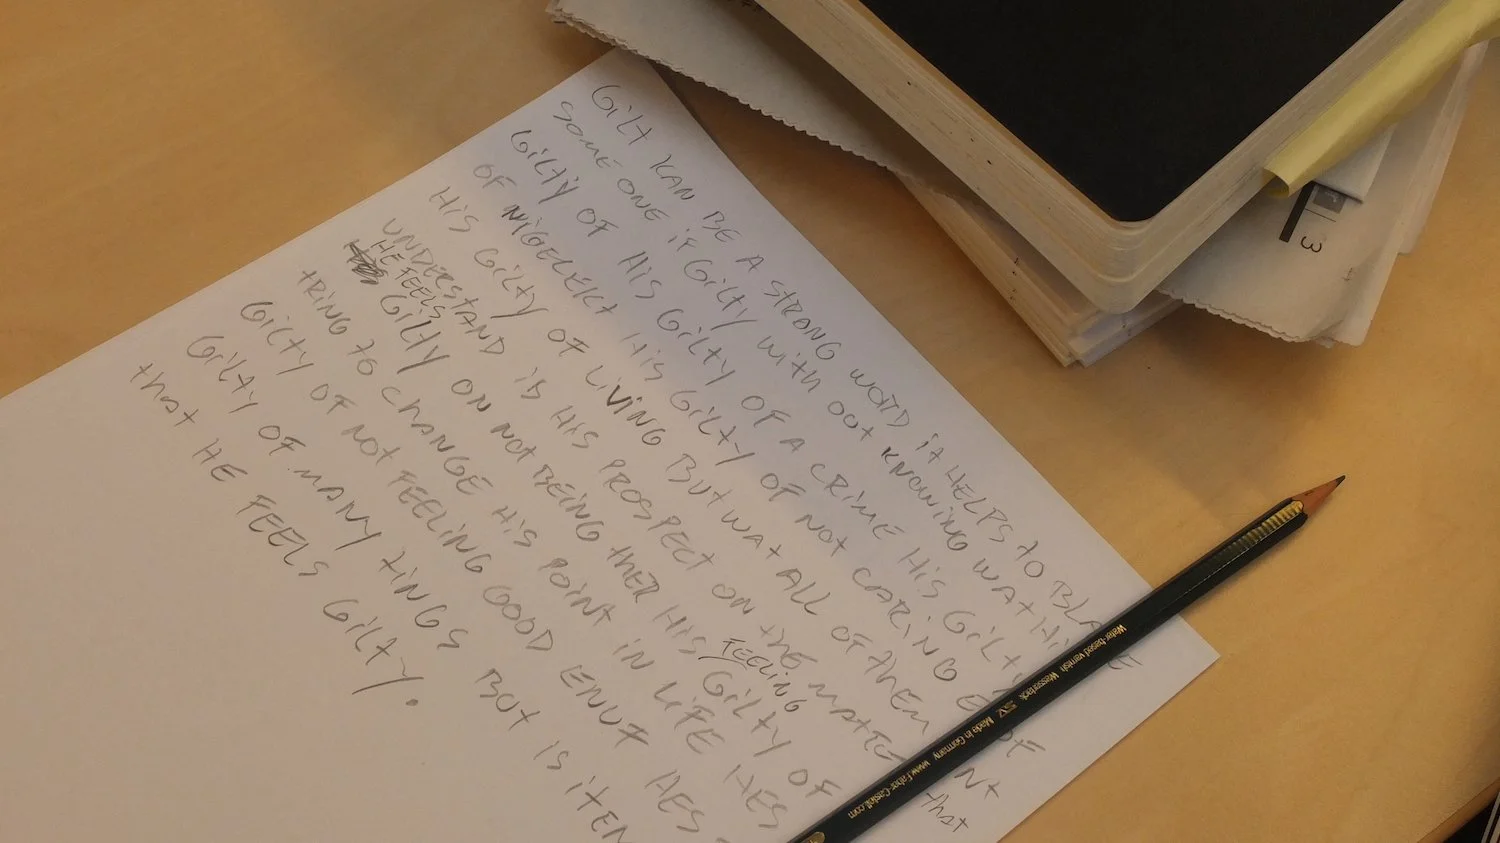 GiLT KAN BE A STRONG WORD iT HELPS TO
SOME ONE iF GiLTY WiTH OUT KNOWiNG WAT
GiLTY OF HiS GiLTY OF A CRiME HiS GiLTY OF
OF NiGELEKT HiS GiLTY OF NOT CARiNG
HiS GiLTY OF LiViNG BUT WAT ALL OF THEM that
UNDERSTAND iS HiS PROSPECT ON THE
HE FEELS GiLTY ON NOT BEiNG THER HiS FEELiNG GiLTY OF
TRiNG TO CHANGE HiS POiNT iN LiFE HES
GiLTY OF NOT FEELiNG GOOD ENUF HES
GiLTY OF MANY TiNGS BUT iS
THAT HE FEELS GiLTY.
Water-based varnish Wasserlack SV Made in Germany www.Faber-Castell.com
3